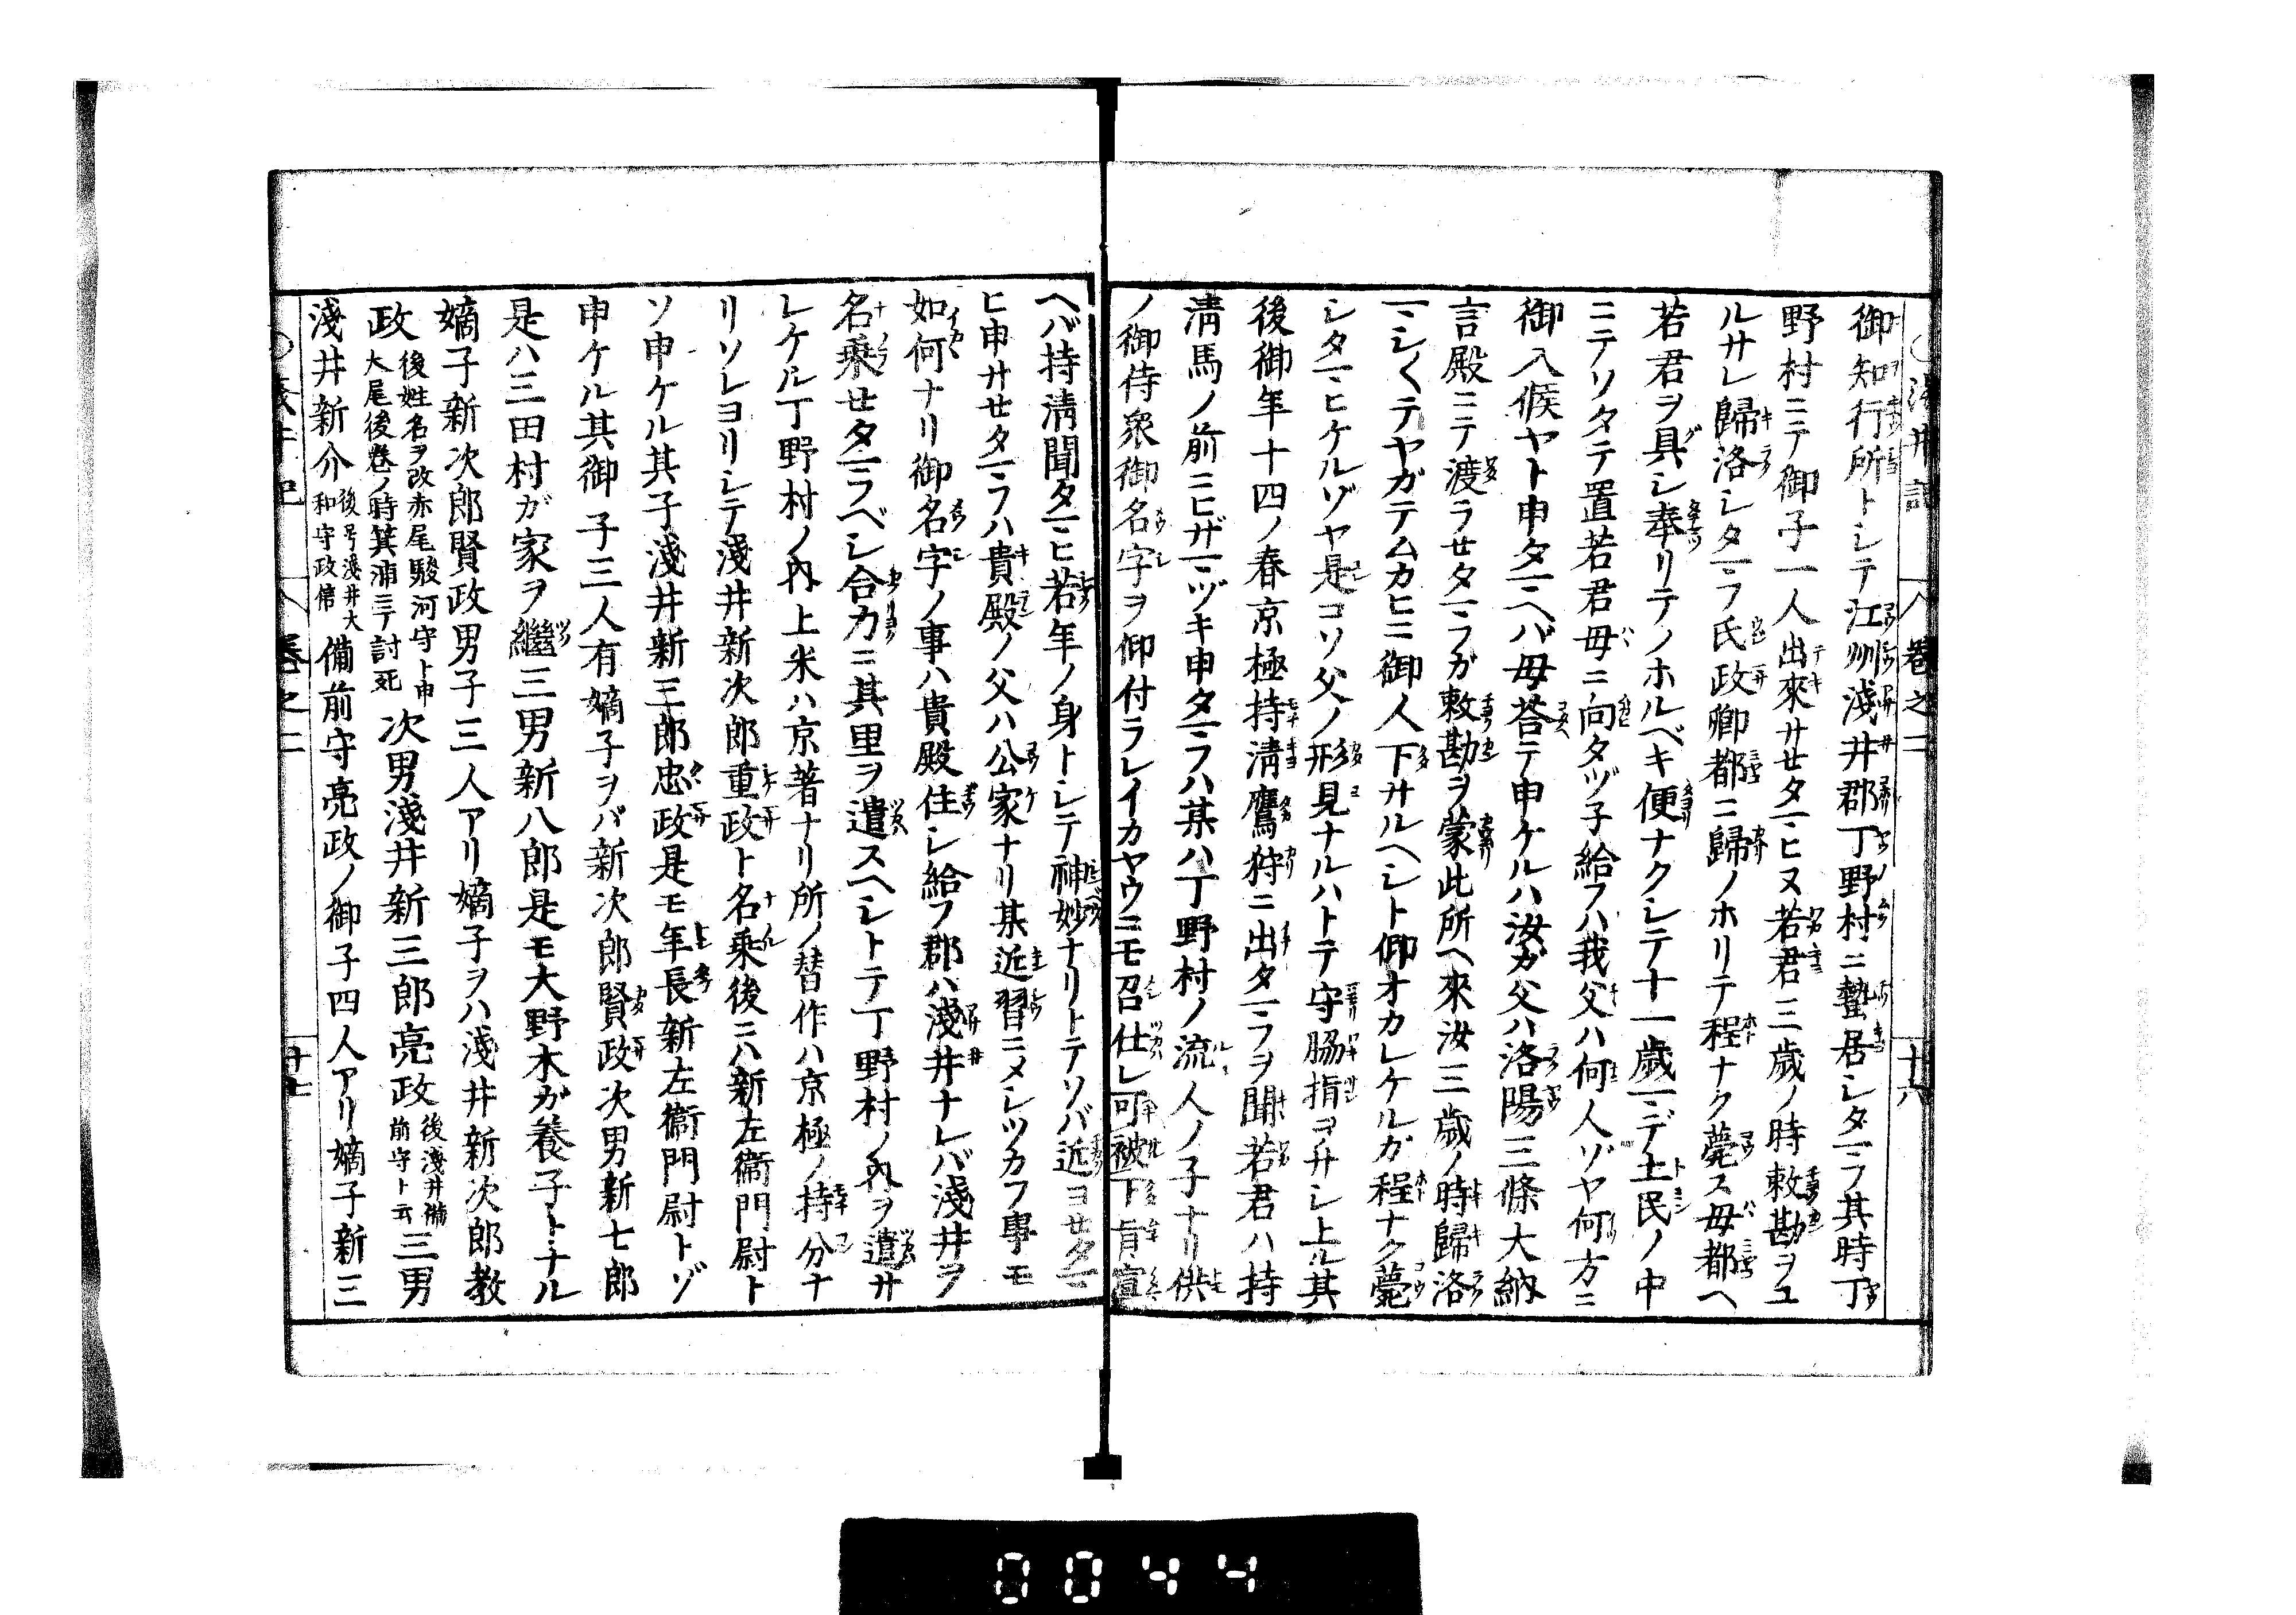 淺井記 卷之二 十六
御知行所トシテ江州淺井郡丁野村ニ蟄居シタマフ其時丁
野村ニテ御子一人出來サセタマヒヌ若君三歳ノ時敕勘ヲユ
ルサレ歸洛シタマフ氏政卿都ニ歸ノホリテ程ナク薨ス母都ヘ
若君ヲ具シ奉リテノホルベキ便ナクシテ十一歳マデ土民ノ中
ニテソタテ置若君母ニ向タヅ子給フハ我父ハ何人ゾヤ何方ニ
御入候ヤト申タマヘバ母荅テ申ケルハ汝ガ父ハ洛陽三條大納
言殿ニテ渡ラせタマフガ敕勘ヲ蒙此所ヘ來汝三歳ノ時歸洛
マシ〱テヤガテムカヒニ御人下サルヘシト仰オカレケルガ程ナク薨
シタマヒケルゾヤ是コソ父ノ形見ナルハトテ守脇指ヲサシ上ル其
後御年十四ノ春京極持淸鷹狩ニ出タマフヲ聞若君ハ持
淸馬ノ前ニヒザマヅキ申タマフハ某ハ丁野村ノ流人ノ子ナリ供
ノ御侍衆御名字ヲ仰付ラレイカヤウニモ召仕レ可被下旨宣
ヘバ持淸聞タマヒ若年ノ身トシテ神妙ナリトテソバ近ヨせタマ
ヒ申サせタマフハ貴殿ノ父ハ公家ナリ某近習ニメシツカフ事モ
如何ナリ御名字ノ事ハ貴殿住シ給フ郡ハ淺井ナレバ淺井ヲ
名乘せタマフベシ合力ニ其里ヲ遣スヘシトテ丁野村ノ內ヲ遣サ
レケル丁野村ノ內上米ハ京著ナリ所ノ替作ハ京極ノ持分ナ
リソレヨリシテ淺井新次郎重政ト名乘後ニハ新左衞門尉ト
ソ申ケル其子淺井新三郎忠政是モ年長新左衞門尉トゾ
申ケル其御子三人有嫡子ヲバ新次郎賢政次男新七郎
是ハ三田村ガ家ヲ繼三男新八郎是モ大野木ガ養子トナル
嫡子新次郎賢政男子三人アリ嫡子ヲハ淺井新次郎教
政 後姓名ヲ改赤尾駿河守ト申 大尾後卷ノ時箕浦ニテ討死 次男淺井新三郎亮政 後淺井備 前守ト云 三男
淺井新介 後号淺井大 和守政信 備前守亮政ノ御子四人アリ嫡子新三
卷之二 十七
0044